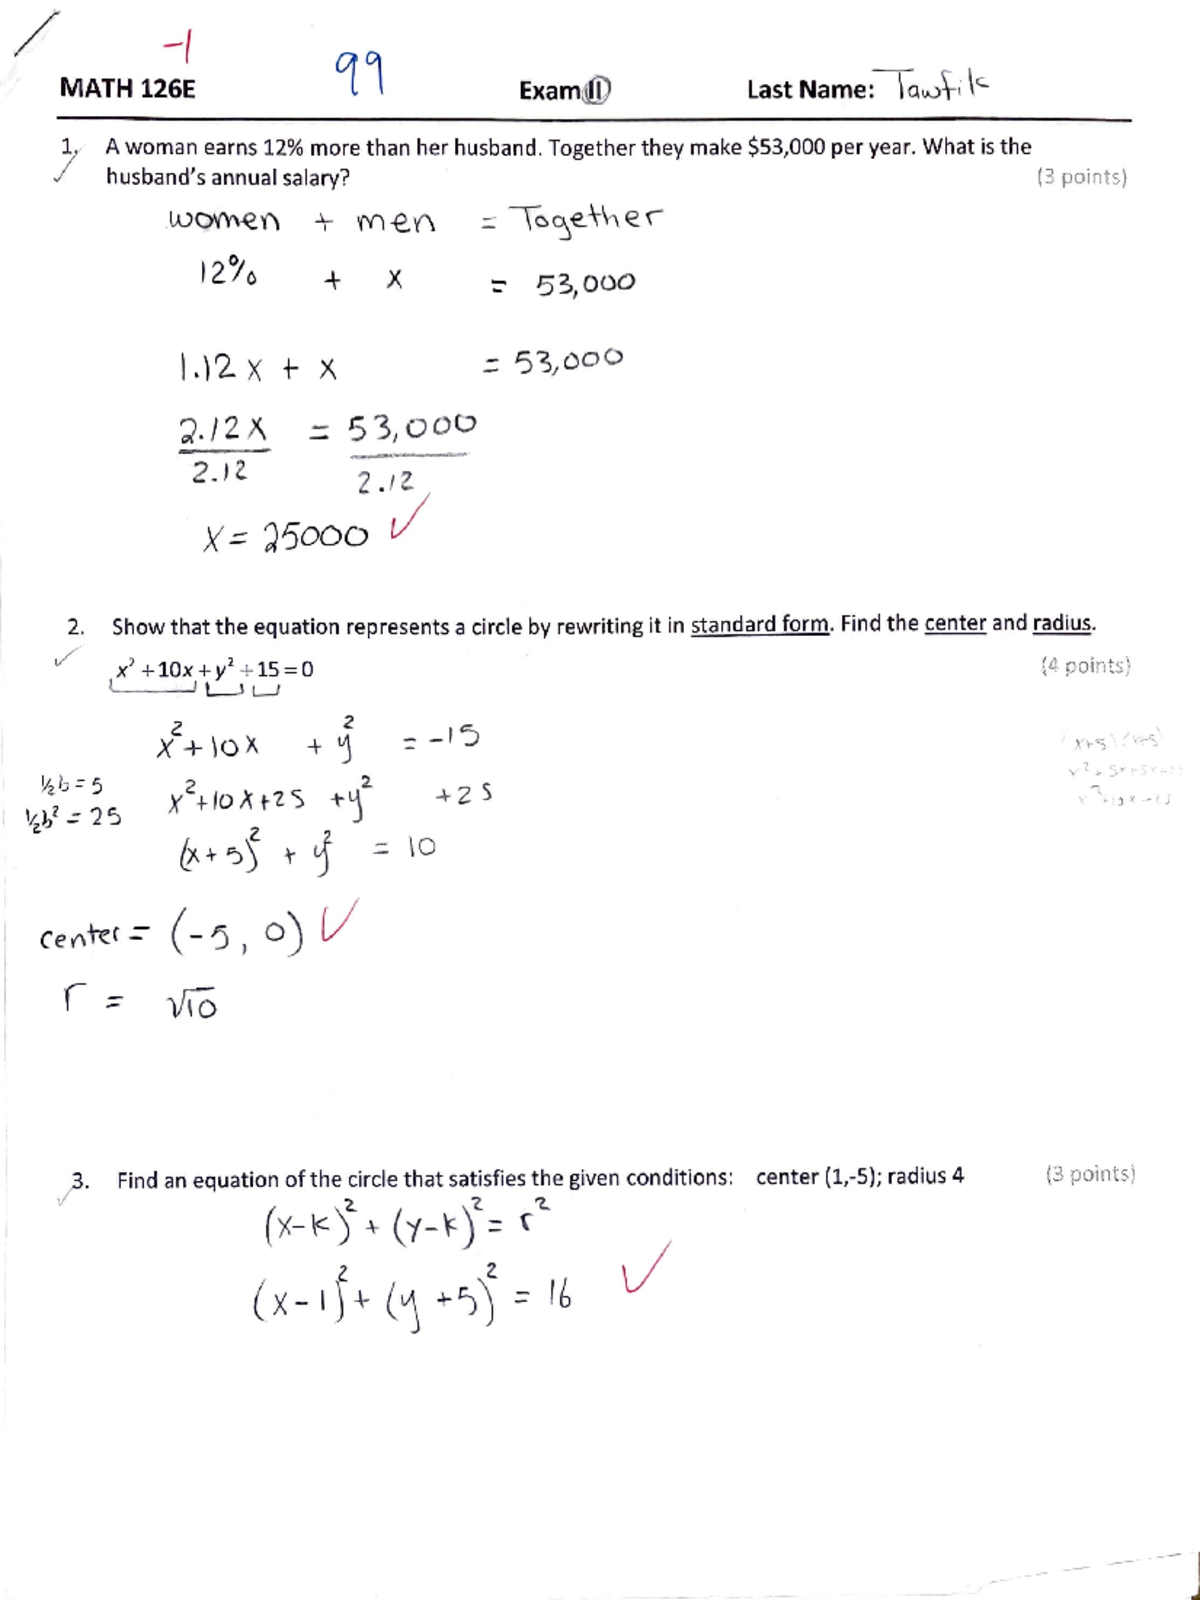 -1
99
MATH 126E Exam II Last Name: Tawfik
1. A woman earns 12% more than her husband. Together they make $53,000 per year. What is the
husband's annual salary? (3 points)
women + men = Together
12% + x = 53,000
1.12x + x = 53,000
2.12x = 53,000
2.12 2.12
x = 25000 ✓
2. Show that the equation represents a circle by rewriting it in standard form. Find the center and radius.
x² + 10x + y² + 15 = 0 (4 points)
x² + 10x + y² = -15
½b = 5
x² + 10x + 25 + y² +25
½b² = 25
(x + 5)² + y² = 10
center = (-5, 0) ✓
r = √10
3. Find an equation of the circle that satisfies the given conditions: center (1,-5); radius 4 (3 points)
(x-k)² + (y-k)² = r²
(x - 1)² + (y + 5)² = 16 ✓